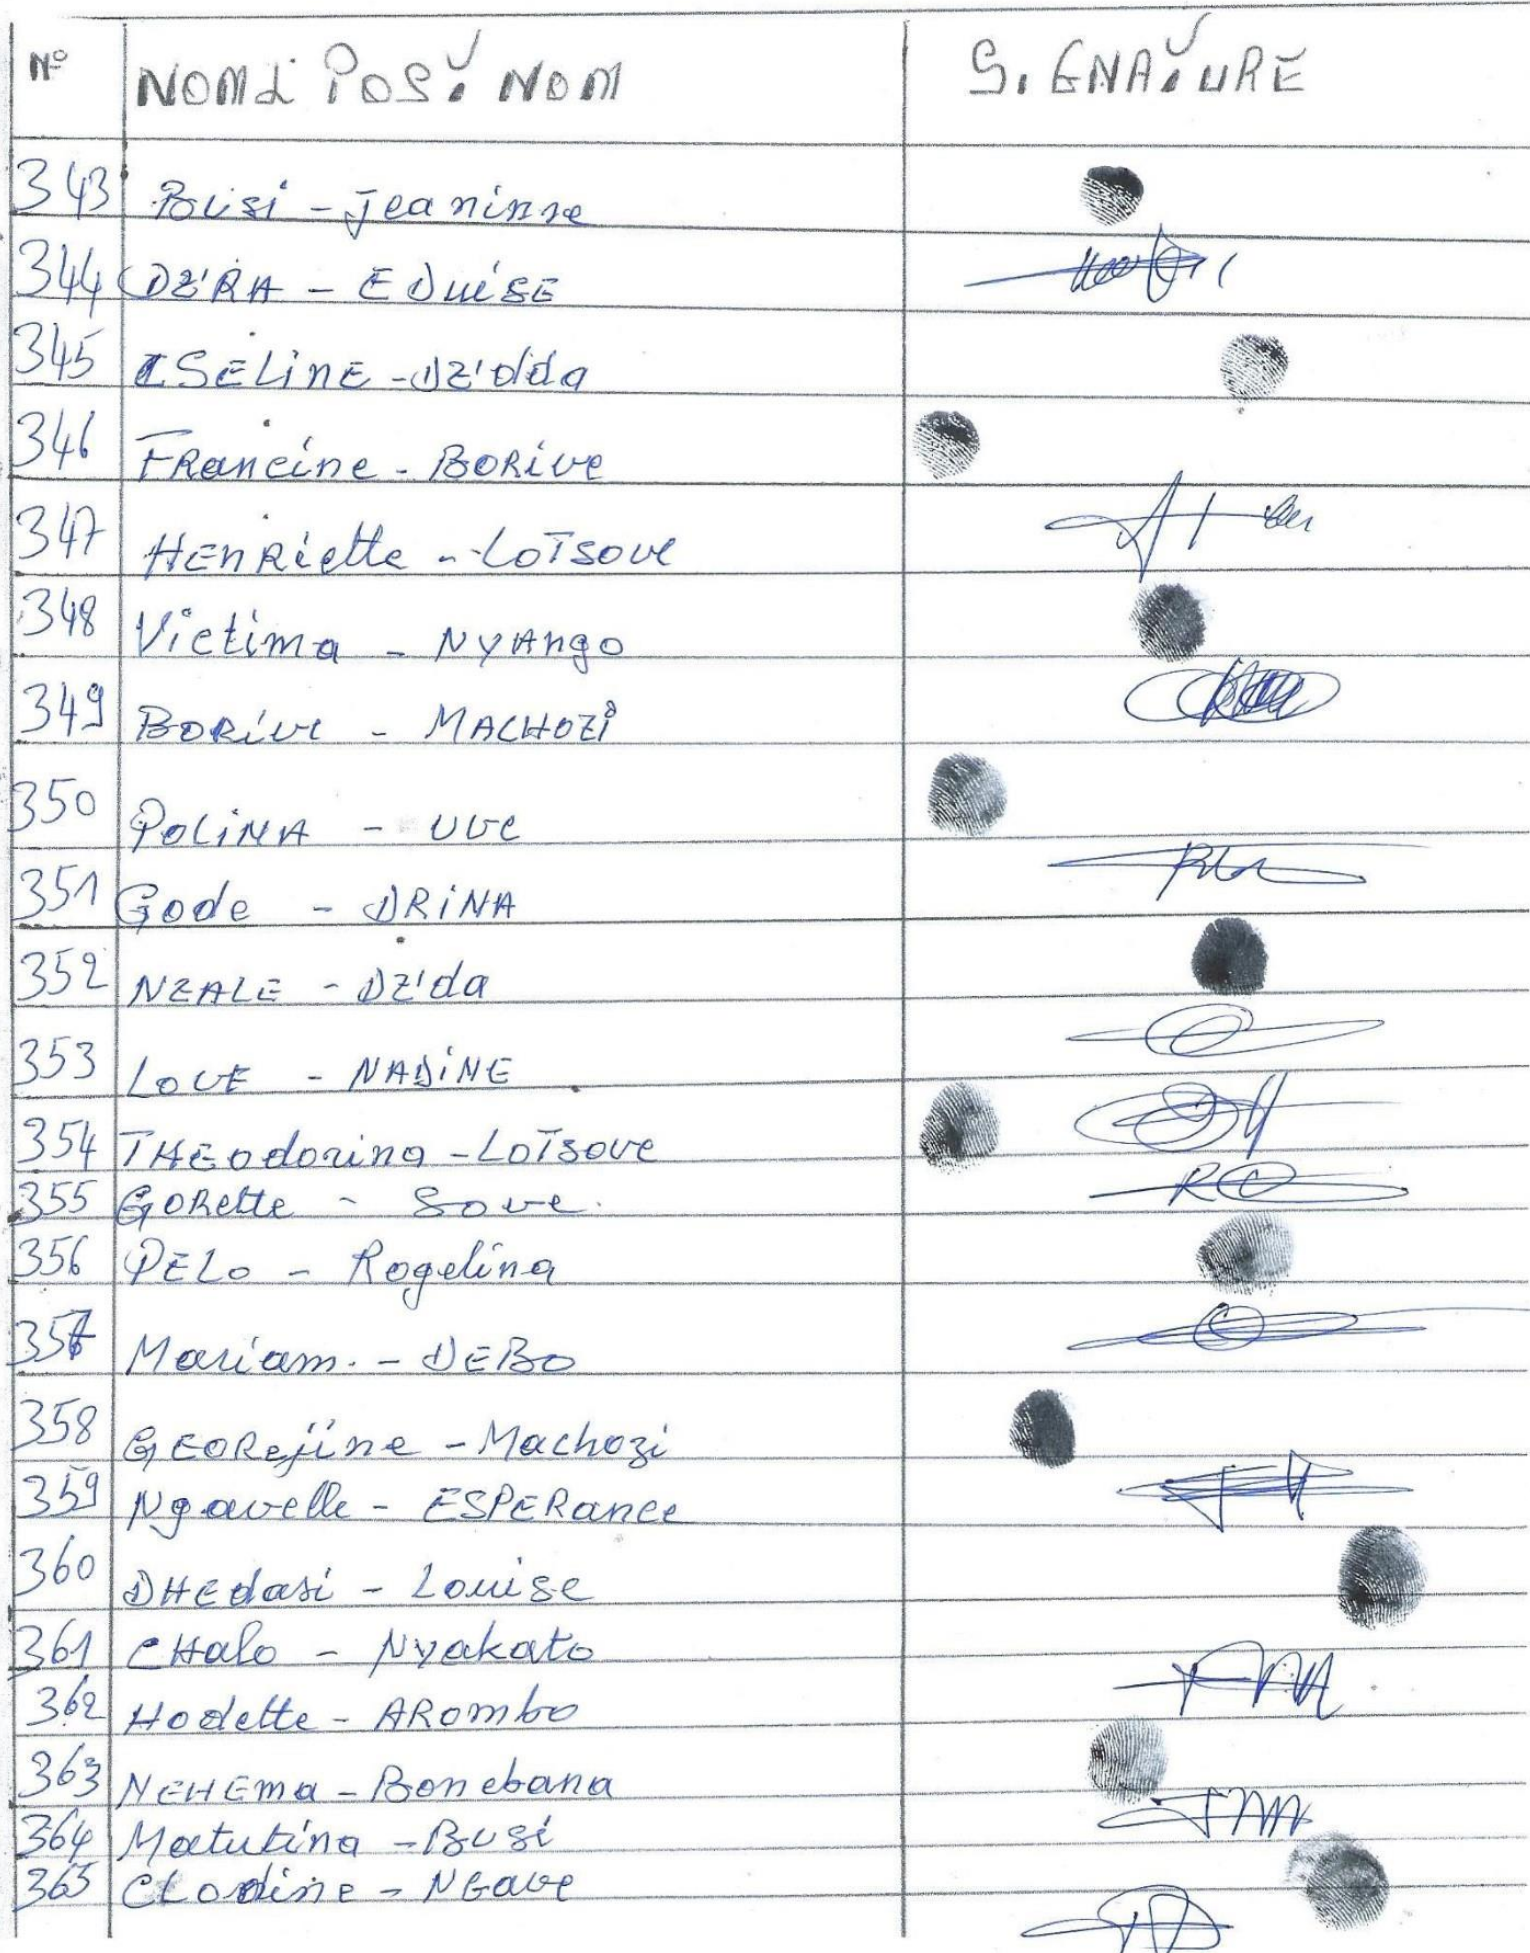 N° NOM & POST NOM SIGNATURE
343 BUSI - Jeaninne
344 DZ'RA - EDUISE
345 ISELINE - DZ'dda
346 FRancine - BORIVE
347 HENRiette - LOTSOVE
348 Victima - NYAngo
349 BORIVE - MACHOZI
350 POLINA - UVE
351 Gode - DRINA
352 NZALE - DZ'da
353 LOVE - NADINE
354 THEodorina - LOTSOVE
355 GORette - Sove
356 PELO - Rogelina
357 Mariam. - DEBO
358 GEORejine - Machozi
359 Ngavelle - ESPERance
360 DHEdasi - Louise
361 CHalo - Nyakato
362 Hodette - ARombo
363 NEHEma - Bonebana
364 Matutina - BUSI
365 CLodine - NGave